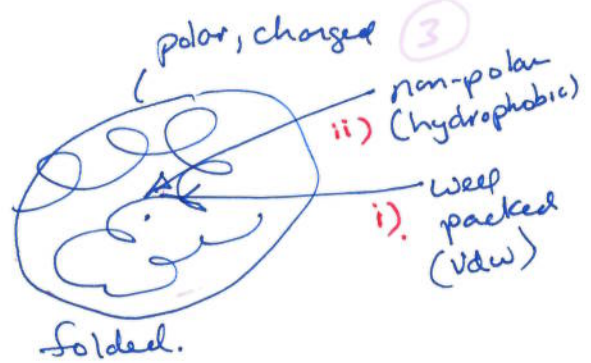 polar, charged
3
non-polar
ii) (hydrophobic)
i). well
packed
(vdw)
folded.